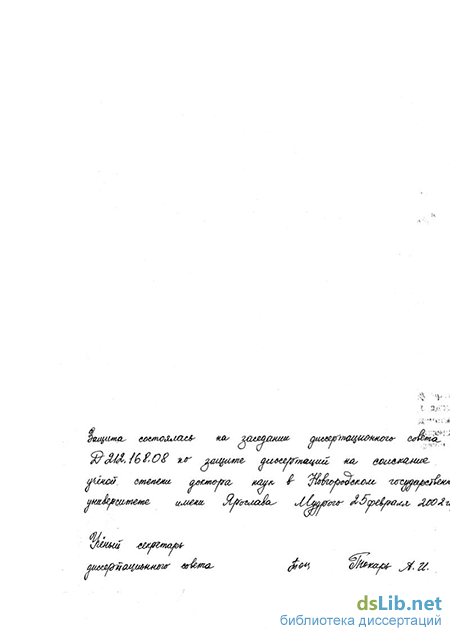 Защита состоялась на заседании диссертационного совета
Д 212.168.08 по защите диссертаций на соискание
учёной степени доктора наук в Новгородском государственн
университете имени Ярослава Мудрого 25 февраля 2002г
Учёный секретарь
диссертационного совета Токарь А.И.
dsLib.net
библиотека диссертаций